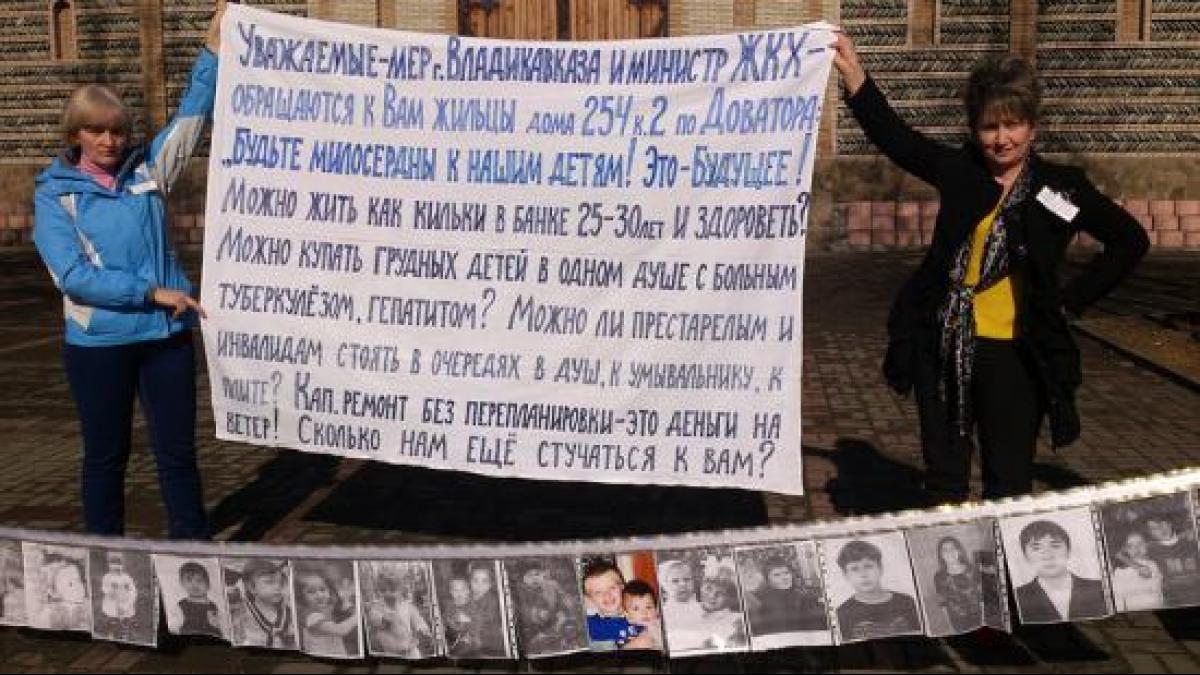 Уважаемые-мер г. Владикавказа и министр ЖКХ-
обращаются к Вам жильцы дома 254 к.2 по Доватора:
„Будьте милосердны к нашим детям! Это-Будущее!
Можно жить как кильки в банке 25-30 лет и здороветь?
Можно купать грудных детей в одном душе с больным
туберкулёзом, гепатитом? Можно ли престарелым и
инвалидам стоять в очередях в душ, к умывальнику, к
плите? Кап. ремонт без перепланировки-это деньги на
ветер! Сколько нам ещё стучаться к вам?